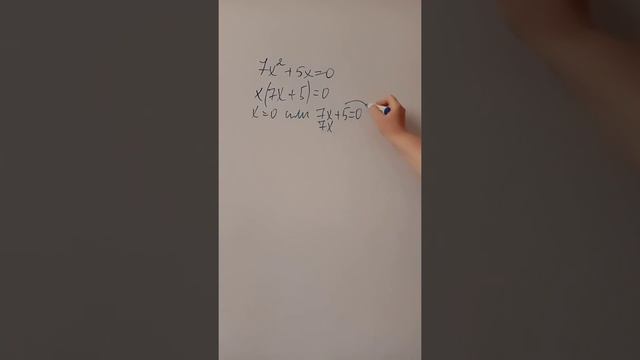 7x²+5x=0
x(7x+5)=0
x=0 или 7x+5=0
7x